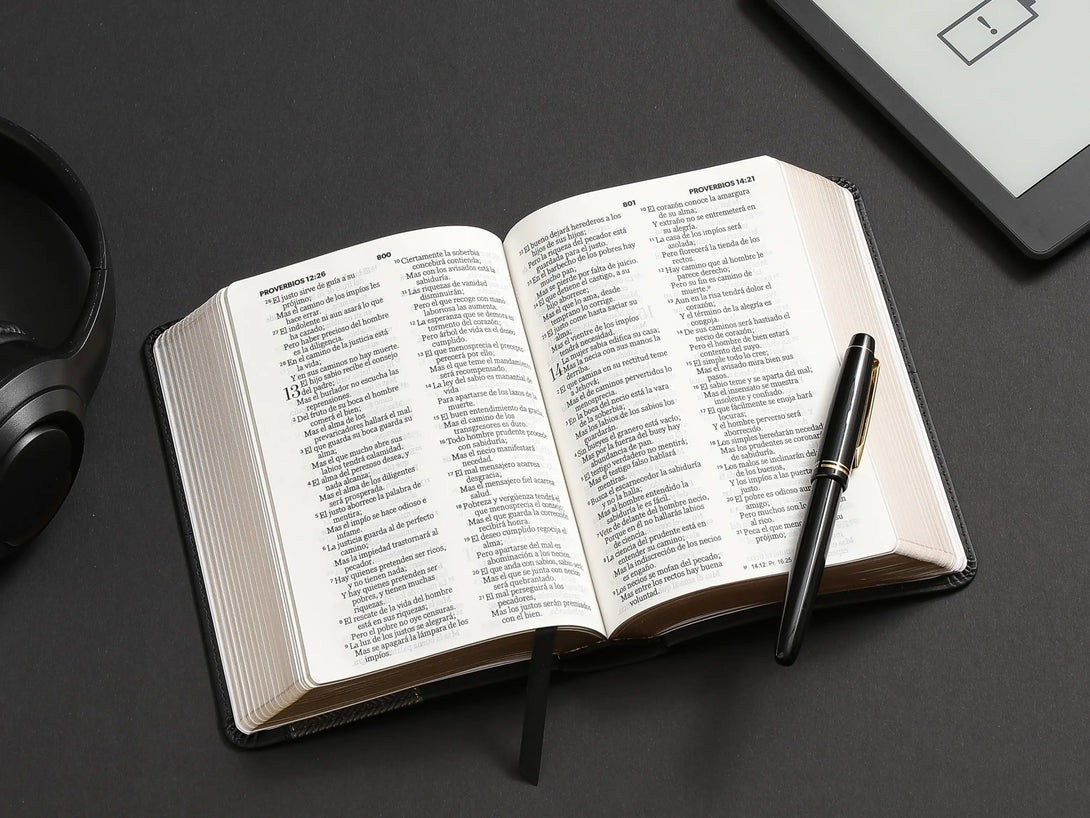 PROVERBIOS 12:26
800
26 El justo sirve de guía a su
prójimo;
Mas el camino de los impíos les
hace errar.
27 El indolente ni aun asará lo que
ha cazado;
Pero haber precioso del hombre
es la diligencia.
28 En el camino de la justicia está
la vida;
Y en sus caminos no hay muerte.
13 El hijo sabio recibe el consejo
del padre;
Mas el burlador no escucha las
reprensiones.
2 Del fruto de su boca el hombre
comerá el bien;
Mas el alma de los
prevaricadores hallará el mal.
3 El que guarda su boca guarda su
alma;
Mas el que mucho abre sus
labios tendrá calamidad.
4 El alma del perezoso desea, y
nada alcanza;
Mas el alma de los diligentes
será prosperada.
5 El justo aborrece la palabra de
mentira;
Mas el impío se hace odioso e
infame.
6 La justicia guarda al de perfecto
camino;
Mas la impiedad trastornará al
pecador.
7 Hay quienes pretenden ser ricos,
y no tienen nada;
Y hay quienes pretenden ser
pobres, y tienen muchas
riquezas.
8 El rescate de la vida del hombre
está en sus riquezas;
Pero el pobre no oye censuras.
9 La luz de los justos se alegrará;
Mas se apagará la lámpara de los
impíos.
10 Ciertamente la soberbia
concebirá contienda;
Mas con los avisados está la
sabiduría.
11 Las riquezas de vanidad
disminuirán;
Pero el que recoge con mano
laboriosa las aumenta.
12 La esperanza que se demora es
tormento del corazón;
Pero árbol de vida es el deseo
cumplido.
13 El que menosprecia el precepto
perecerá por ello;
Mas el que teme el mandamiento
será recompensado.
14 La ley del sabio es manantial de
vida
Para apartarse de los lazos de la
muerte.
15 El buen entendimiento da gracia;
Mas el camino de los
transgresores es duro.
16 Todo hombre prudente procede
con sabiduría;
Mas el necio manifestará
necedad.
17 El mal mensajero acarrea
desgracia;
Mas el mensajero fiel acarrea
salud.
18 Pobreza y vergüenza tendrá el
que menosprecia el consejo;
Mas el que guarda la corrección
recibirá honra.
19 El deseo cumplido regocija el
alma;
Pero apartarse del mal es
abominación a los necios.
20 El que anda con sabios, sabio será;
Mas el que se junta con necios
será quebrantado.
21 El mal perseguirá a los
pecadores,
Mas los justos serán premiados
con el bien.
801
PROVERBIOS 14:21
22 El bueno dejará herederos a los
hijos de sus hijos;
Pero la riqueza del pecador está
guardada para el justo.
23 En el barbecho de los pobres hay
mucho pan;
Mas se pierde por falta de juicio.
24 El que detiene el castigo, a su
hijo aborrece;
Mas el que lo ama, desde
temprano lo corrige.
25 El justo come hasta saciar su
alma;
Mas el vientre de los impíos
tendrá necesidad.
14 La mujer sabia edifica su casa;
Mas la necia con sus manos la
derriba.
2 El que camina en su rectitud teme
a Jehová;
Mas el de caminos pervertidos lo
menosprecia.
3 En la boca del necio está la vara
de la soberbia;
Mas los labios de los sabios los
guardarán.
4 Sin bueyes el granero está vacío;
Mas por la fuerza del buey hay
abundancia de pan.
5 El testigo verdadero no mentirá;
Mas el testigo falso hablará
mentiras.
6 Busca el escarnecedor la sabiduría
y no la halla;
Mas al hombre entendido la
sabiduría le es fácil.
7 Vete de delante del hombre necio,
Porque en él no hallarás labios
de ciencia.
8 La ciencia del prudente está en
entender su camino;
Mas la indiscreción de los necios
es engaño.
9 Los necios se mofan del pecado;
Mas entre los rectos hay buena
voluntad.
10 El corazón conoce la amargura
de su alma;
Y extraño no se entremeterá en
su alegría.
11 La casa de los impíos será
asolada;
Pero florecerá la tienda de los
rectos.
12 Hay camino que al hombre le
parece derecho;
Pero su fin es camino de
muerte.
13 Aun en la risa tendrá dolor el
corazón;
Y el término de la alegría es
congoja.
14 De sus caminos será hastiado el
necio de corazón;
Pero el hombre de bien estará
contento del suyo.
15 El simple todo lo cree;
Mas el avisado mira bien sus
pasos.
16 El sabio teme y se aparta del mal;
Mas el insensato se muestra
insolente y confiado.
17 El que fácilmente se enoja hará
locuras;
Y el hombre perverso será
aborrecido.
18 Los simples heredarán necedad
Mas los prudentes se coronarán
de sabiduría.
19 Los malos se inclinarán de
de los buenos,
Y los impíos a las puertas
justo.
20 El pobre es odioso aun
amigo;
Pero muchos son lo
al rico.
21 Peca el que menos
prójimo;
14.12: Pr. 16:25